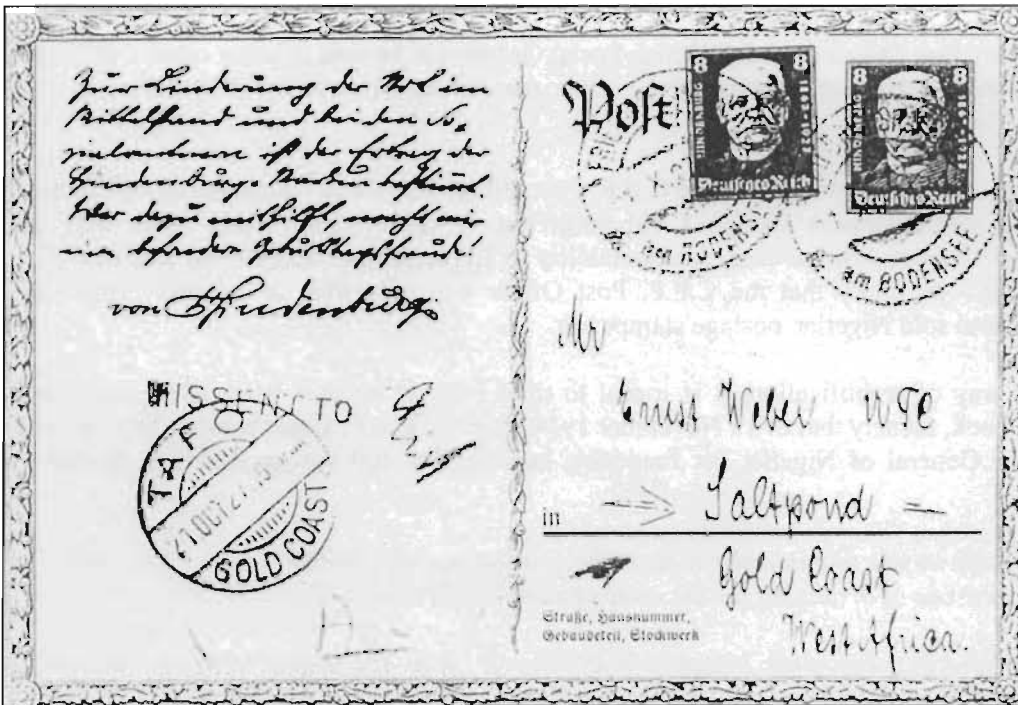 Zur Linderung der Not im
Mittelstand und bei den So-
zialrentnern ist der Ertrag der
Hindenburg-Marken bestimmt.
Wer dazu mithilft, macht mir
eine besondere Geburtstagsfreude!
von Hindenburg
Post
8 8
Deutsches Reich
8 8
Deutsches Reich
am BODENSEE
am BODENSEE
MISSENT TO
TAFO
21 OCT 27
GOLD COAST
Mr
Ernst Weber
in Saltpond
Gold Coast
West Africa.
Straße, Hausnummer,
Gebäudeteil, Stockwerk